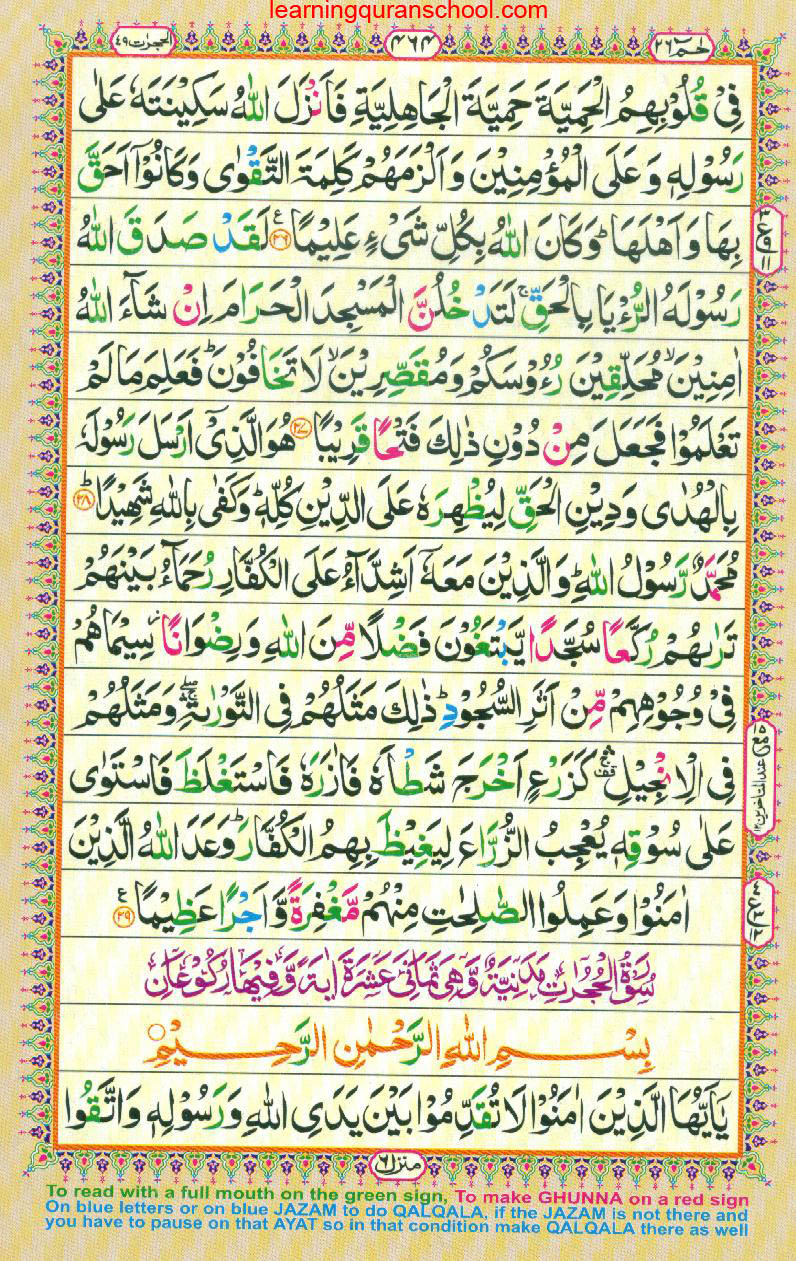 learningquranschool.com
الحجرٰت ٤٩
٤٦٤
حٰمٓ ٢٦
فِىْ قُلُوْبِهِمُ الْحَمِيَّةَ حَمِيَّةَ الْجَاهِلِيَّةِ فَاَنْزَلَ اللّٰهُ سَكِيْنَتَهٗ عَلٰى
رَسُوْلِهٖ وَ عَلَى الْمُؤْمِنِيْنَ وَ اَلْزَمَهُمْ كَلِمَةَ التَّقْوٰى وَكَانُوْۤا اَحَقَّ
بِهَا وَ اَهْلَهَا ؕ وَ كَانَ اللّٰهُ بِكُلِّ شَىْءٍ عَلِيْمًا ۝٢٦ۧ لَقَدْ صَدَقَ اللّٰهُ
رَسُوْلَهُ الرُّءْيَا بِالْحَقِّ ۚ لَتَدْخُلُنَّ الْمَسْجِدَ الْحَرَامَ اِنْ شَآءَ اللّٰهُ
اٰمِنِيْنَ ۙ مُحَلِّقِيْنَ رُءُوْسَكُمْ وَ مُقَصِّرِيْنَ ۙ لَا تَخَافُوْنَ ؕ فَعَلِمَ مَا لَمْ
تَعْلَمُوْا فَجَعَلَ مِنْ دُوْنِ ذٰلِكَ فَتْحًا قَرِيْبًا ۝٢٧ هُوَ الَّذِىْۤ اَرْسَلَ رَسُوْلَهٗ
بِالْهُدٰى وَ دِيْنِ الْحَقِّ لِيُظْهِرَهٗ عَلَى الدِّيْنِ كُلِّهٖ ؕ وَ كَفٰى بِاللّٰهِ شَهِيْدًا ؕ۝٢٨
مُحَمَّدٌ رَّسُوْلُ اللّٰهِ ؕ وَ الَّذِيْنَ مَعَهٗۤ اَشِدَّآءُ عَلَى الْكُفَّارِ رُحَمَآءُ بَيْنَهُمْ
تَرٰىهُمْ رُكَّعًا سُجَّدًا يَّبْتَغُوْنَ فَضْلًا مِّنَ اللّٰهِ وَ رِضْوَانًا ۫ سِيْمَاهُمْ
فِىْ وُجُوْهِهِمْ مِّنْ اَثَرِ السُّجُوْدِ ؕ ذٰلِكَ مَثَلُهُمْ فِى التَّوْرٰىةِ ۛۖۚ وَ مَثَلُهُمْ
فِى الْاِنْجِيْلِ ۛۚ۫ كَزَرْعٍ اَخْرَجَ شَطْاَهٗ فَاٰزَرَهٗ فَاسْتَغْلَظَ فَاسْتَوٰى
عَلٰى سُوْقِهٖ يُعْجِبُ الزُّرَّاعَ لِيَغِيْظَ بِهِمُ الْكُفَّارَ ؕ وَعَدَ اللّٰهُ الَّذِيْنَ
اٰمَنُوْا وَ عَمِلُوا الصّٰلِحٰتِ مِنْهُمْ مَّغْفِرَةً وَّ اَجْرًا عَظِيْمًا ۝٢٩ۧ
سُوْرَةُ الْحُجُرٰتِ مَدَنِيَّةٌ وَّهِىَ ثَمَانِىْ عَشْرَةَ اٰيَةً وَّ فِيْهَا رُكُوْعَانِ
بِسْمِ اللّٰهِ الرَّحْمٰنِ الرَّحِيْمِ ۝
يٰۤاَيُّهَا الَّذِيْنَ اٰمَنُوْا لَا تُقَدِّمُوْا بَيْنَ يَدَىِ اللّٰهِ وَ رَسُوْلِهٖ وَ اتَّقُوا
منزل ٦
To read with a full mouth on the green sign, To make GHUNNA on a red sign
On blue letters or on blue JAZAM to do QALQALA, if the JAZAM is not there and
you have to pause on that AYAT so in that condition make QALQALA there as well